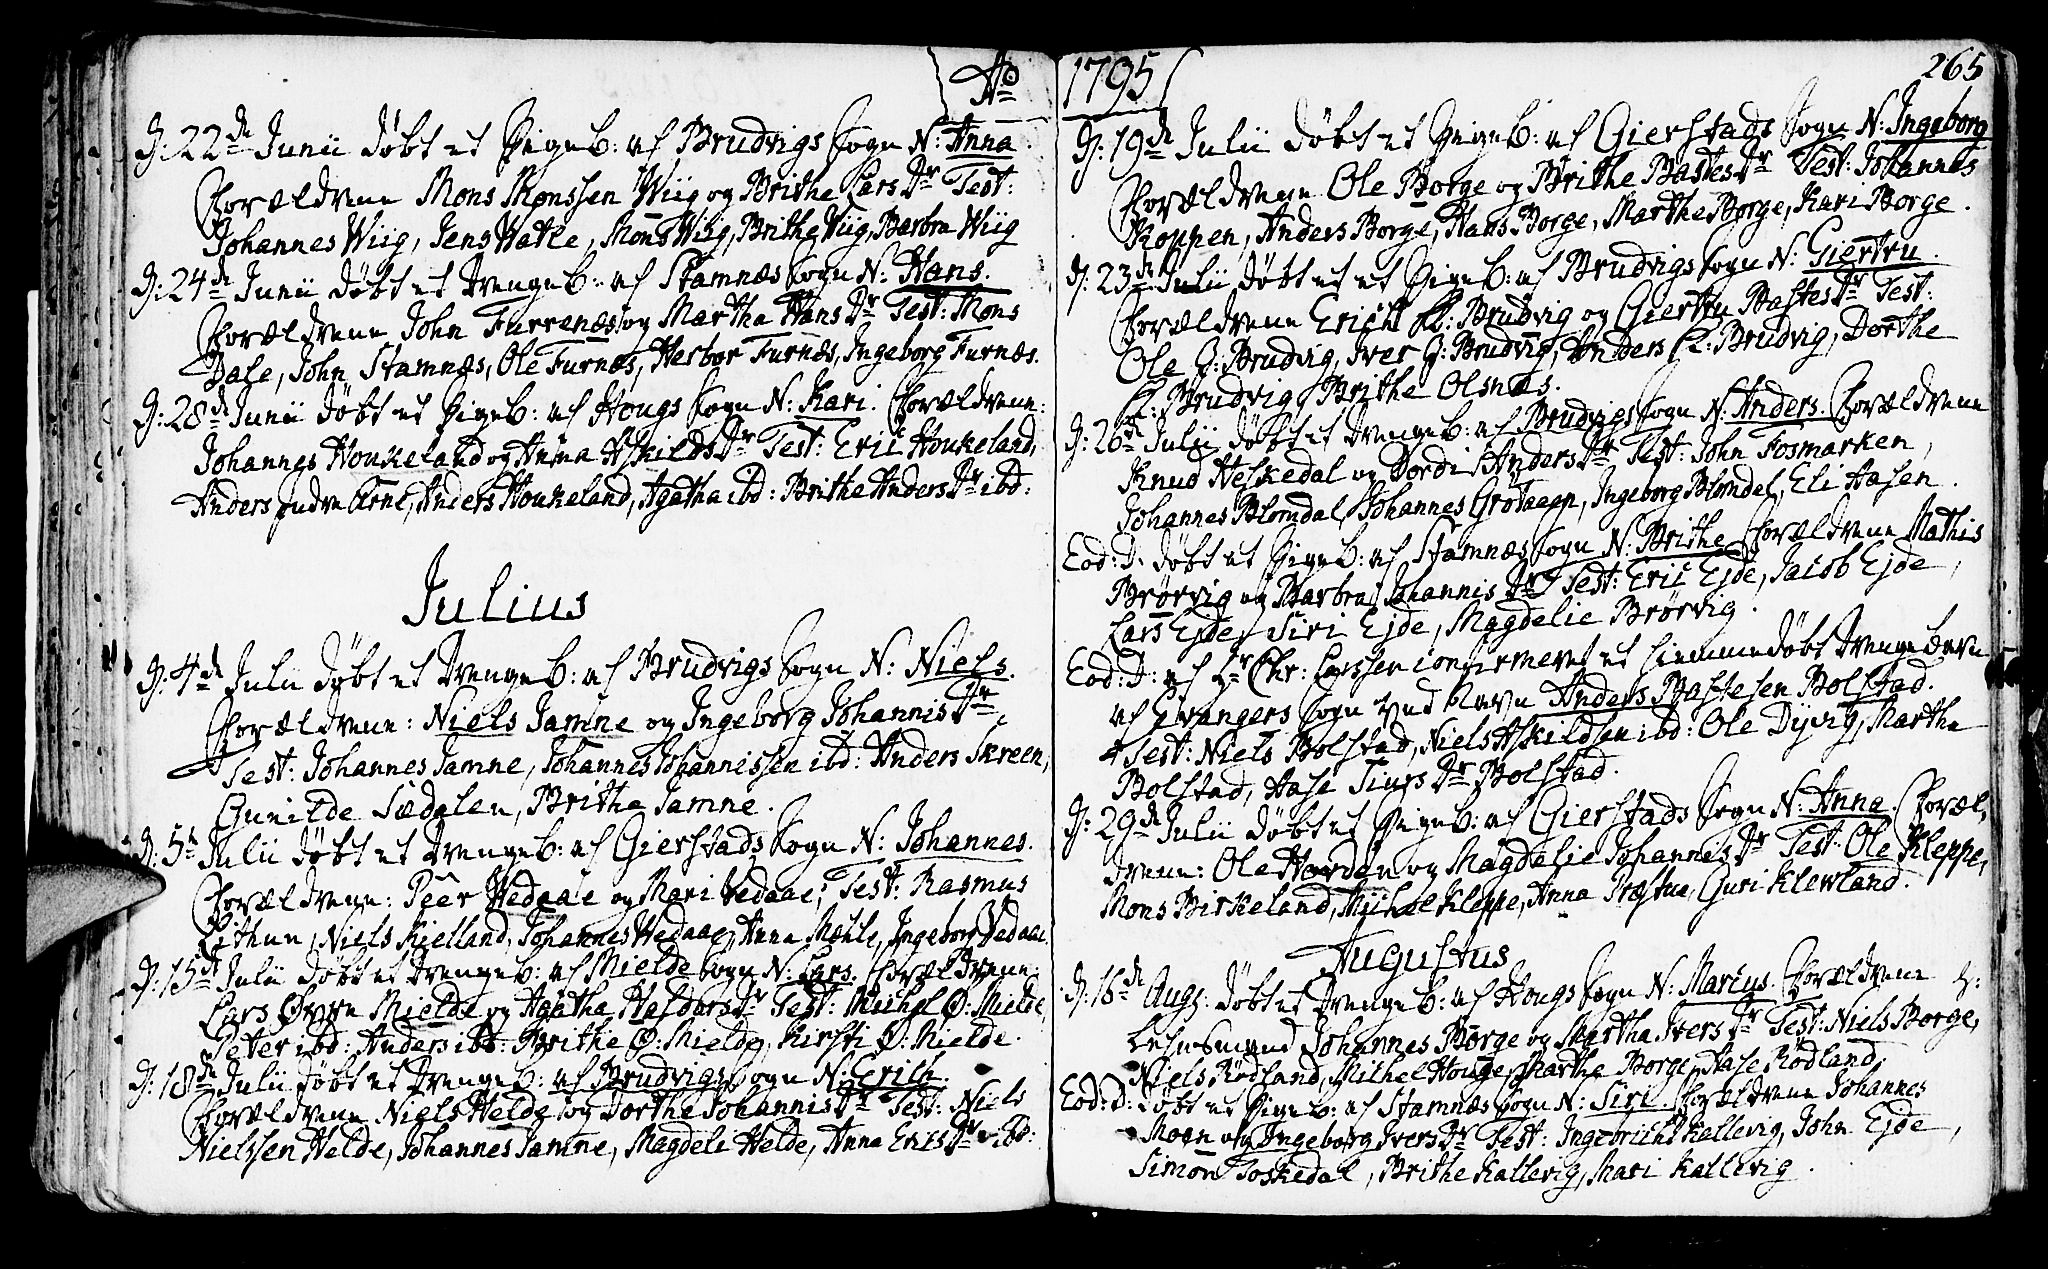 Ao
D: 22de Junii døbt et Pigeb: af Brudvigs Sogn N: Anna.
Forældrene Mons Monssen Wiig og Brithe Lars Dr Test:
Johannes Wiig, Jens Watle, Mons Wiig, Brithe Wiig, Barbra Wiig
D: 24de Junii døbt et Drengeb: af Stamnæs Sogn N: Hans.
Forældrene John Furrenæs og Martha Hans Dr Test: Mons
Dale, John Stamnæs, Ole Furnæs, Herbor Furnæs, Ingeborg Furnæs.
D: 28de Junii døbt et Pigeb: af Hougs Sogn N: Kari. Forældrene:
Johannes Houkeland og Anna Askilds Dr Test: Eric Houkeland,
Anders Indre Arne, Anders Houkeland, Agatha ibd: Brithe Anders Dr ibd:
Julius
D: 4de Julii døbt et Drengeb: af Brudvigs Sogn N: Niels.
Forældrene: Niels Jamne og Ingeborg Johannis Dr,
Test: Johannes Jamne, Johannes Johannissen ibd: Anders Skreen,
Gunilde Sædalen, Brithe Jamne.
D: 5te Julii døbt et Drengeb: af Gierstads Sogn N: Johannes.
Forældrene: Peer Wedaae og Mari Vedaae; Test: Rasmus
Lithun, Niels Kielland, Johannes Wedaae, Anna Mæhle, Ingeborg Vedaae.
D: 15de Julii døbt et Drengeb: af Mielde Sogn N: Lars. Forældrene:
Lars Øvre Mielde og Agatha Haldors Dr Test: Michel Ø: Mielde,
Peter ibd: Anders ibd: Brithe Ø: Mielde, Kirsti Ø: Mielde.
D: 18de Julii døbt et Drengeb: af Brudvigs Sogn N: Erich.
Forældrene Niels Helde og Dorthe Johannis Dr Test: Niels
Nielssen Helde, Johannes Jamne, Magdeli Helde, Anna Erics Dr ibd:
1795
265
D: 19de Julii døbt et Pigeb: af Gierstads Sogn N: Ingeborg
Forældrene Ole Borge og Brithe Bastes Dr Test: Johannes
Koppen, Anders Borge, Hans Borge, Marthe Borge, Kari Borge.
D: 23de Julii døbt et et Pigeb: af Brudvigs Sogn N: Giertru.
Forældrene Ericht L: Brudvig og Giertru Bastes Dr Test:
Ole J: Brudvig, Iver J: Brudvig, Anders L: Brudvig, Dorthe
L: Brudvig, Brithe Olsnæs.
D: 26de Julii døbt et Drengeb: af Brudvigs Sogn N: Anders. Forældrene
Knud Heskedal og Dordi Anders Dr Test: John Fosmarken,
Johannes Blomdal, Johannes Grotaaen, Ingeborg Blomdal, Eli Aasen.
Eod: D. døbt et Pigeb: af Stamnæs Sogn N: Brithe Forældrene Mathis
Brørvig og Barbra Johannis Dr Test: Eric Ejde, Jacob Ejde,
Lars Ejde, Siri Ejde, Magdelie Brørvig.
Eod: D: af Hr Chr: Lassen confirmeret et hiemmedøbt Drengebarn
af Evangers Sogn ved Navn Anders Bastesen Bolstad.
Test: Niels Bolstad, Niels Askildsen ibd: Ole Dyvig, Martha
Bolstad, Aase Siurs Dr Bolstad.
D: 29de Julii døbt et Pigeb: af Gierstads Sogn N: Anna. Foræl,
drene: Ole Harden og Magdelie Johannis Dr Test: Ole Kleppe,
Mons Birkeland, Michel Kleppe, Anna Præstue, Guri Klewland.
Augustus
D: 16de Aug: døbt et Drengeb: af Hougs Sogn N: Marcus. Forældrene H:
Lehnsmand Johannes Borge og Martha Ivers Dr Test: Niels Borge,
Niels Rødland, Michel Houge, Marthe Borge, Aase Rødland,
Eod: D: døbt et Pigeb: af Stamnæs Sogn N: Siri. Forældrene Johannes
Moen og Ingeborg Ivers Dr Test: Ingebricht Kallevig, John Ejde,
Simon Toskedal, Brithe Kallevig, Mari Kallevig.